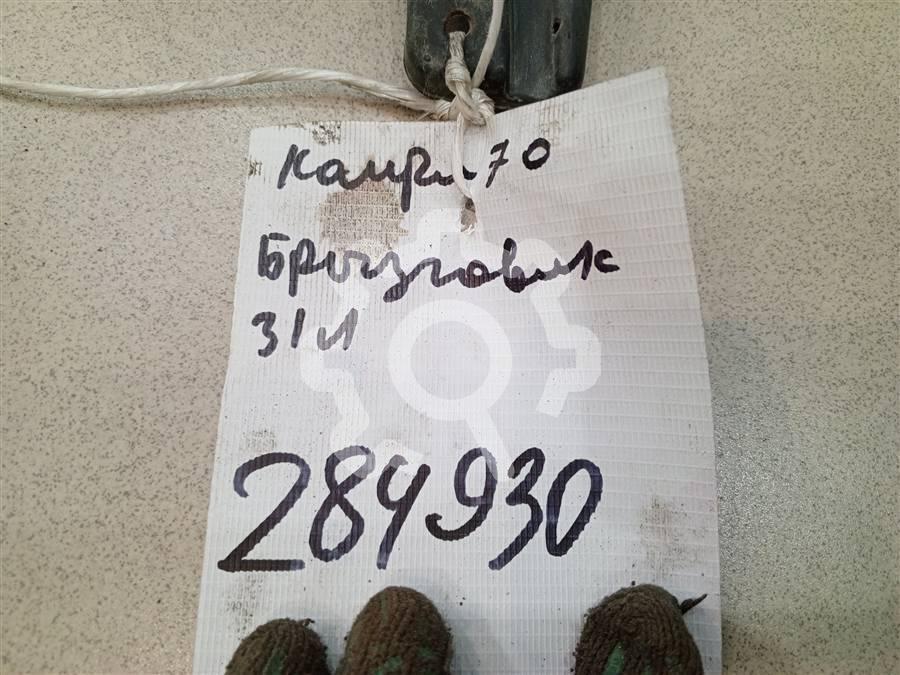 Камри 70
Брызговик
З/Л
284930